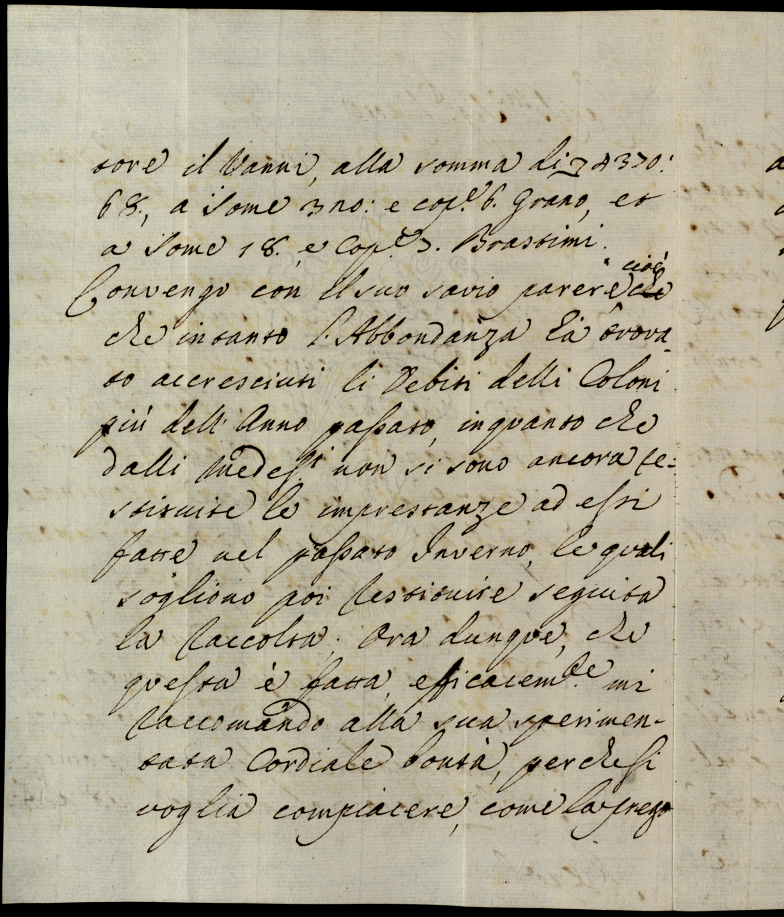 tore il Vanni, alla somma di 74370:
68, a some 320: e cop.e 6. Grano, et
a some 18. e Cop.e 3. Brastimi.
Convengo con il suo savio parere, cioè
che intanto l'Abbondanza hà trova-
to accresciuti li Debiti delli Coloni
più dell'Anno passato, inquanto che
dalli medesi non si sono ancora re-
stituite le imprestanze ad essi
fatte nel passato Inverno, le quali
sogliono poi restituire seguita
la raccolta. Ora dunque, che
questa è fatta, efficacem.te mi
raccomando alla sua sperimen-
tata Cordiale bontà, perche si
voglia compiacere, come la prego